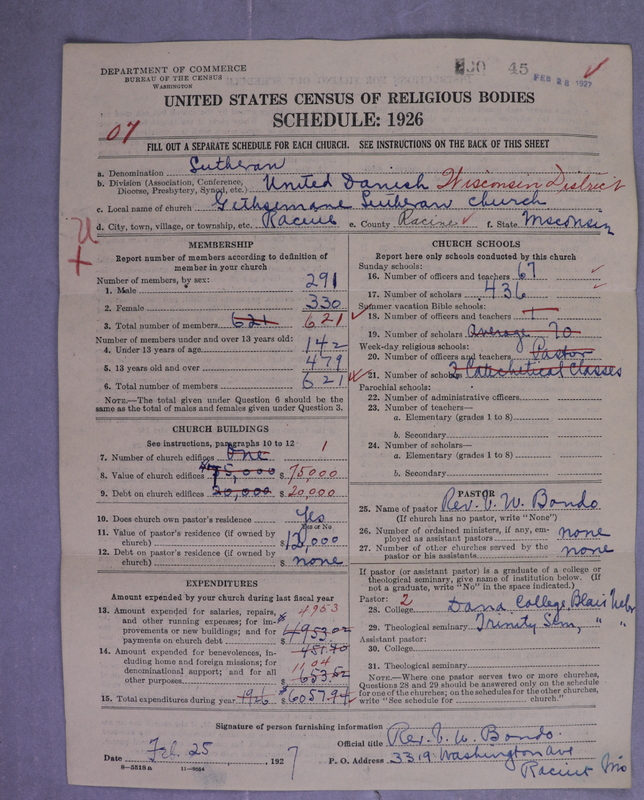 DEPARTMENT OF COMMERCE
BUREAU OF THE CENSUS
WASHINGTON
45
FEB 28 1927
UNITED STATES CENSUS OF RELIGIOUS BODIES
SCHEDULE: 1926
07
FILL OUT A SEPARATE SCHEDULE FOR EACH CHURCH. SEE INSTRUCTIONS ON THE BACK OF THIS SHEET
a. Denomination Lutheran
b. Division (Association, Conference, Diocese, Presbytery, Synod, etc.) United Danish Wisconsin District
c. Local name of church Gethsemane Lutheran Church
d. City, town, village, or township, etc. Racine e. County Racine f. State Wisconsin
MEMBERSHIP
Report number of members according to definition of
member in your church
Number of members, by sex:
1. Male 291
2. Female 330
3. Total number of members 621 621
Number of members under and over 13 years old:
4. Under 13 years of age 142
5. 13 years old and over 479
6. Total number of members 621
NOTE.—The total given under Question 6 should be the
same as the total of males and females given under Question 3.
CHURCH BUILDINGS
See instructions, paragraphs 10 to 12
7. Number of church edifices One 1
8. Value of church edifices 75,000 $ 75,000
9. Debt on church edifices 20,000 $ 20,000
10. Does church own pastor's residence Yes
Yes or No
11. Value of pastor's residence (if owned by
church) $ 12,000
12. Debt on pastor's residence (if owned by
church) $ none
EXPENDITURES
Amount expended by your church during last fiscal year
13. Amount expended for salaries, repairs,
and other running expenses; for im-
provements or new building; and for
payments on church debt 4953 $ 4953.02
14. Amount expended for benevolences, in-
cluding home and foreign missions; for
denominational support; and for all
other purposes 451.40 1104 $ 653.52
15. Total expenditures during year 1926 $ 6057.94
CHURCH SCHOOLS
Report here only schools conducted by this church
Sunday schools:
16. Number of officers and teachers 67
17. Number of scholars 436
Summer vacation Bible schools:
18. Number of officers and teachers
19. Number of scholars Average 70
Week-day religious schools:
20. Number of officers and teachers Pastor
21. Number of scholars 2 Catechetical Classes
Parochial schools:
22. Number of administrative officers
23. Number of teachers—
a. Elementary (grades 1 to 8)
b. Secondary
24. Number of scholars—
a. Elementary (grades 1 to 8)
b. Secondary
PASTOR
25. Name of pastor Rev. V. W. Bondo
(If church has no pastor, write "None")
26. Number of ordained ministers, if any, em-
ployed as assistant pastors none
27. Number of other churches served by the
pastor or his assistants none
If pastor (or assistant pastor) is a graduate of a college or
theological seminary, give name of institution below. (If
not a graduate, write "No" in the space indicated.)
Pastor: 2
28. College Dana College, Blair Nebr
29. Theological seminary Trinity Sem, " "
Assistant pastor:
30. College
31. Theological seminary
NOTE.—Where one pastor serves two or more churches,
Questions 28 and 29 should be answered only on the schedule
for one of the churches; on the schedules for the other churches,
write "See schedule for church."
Signature of person furnishing information
Official title Rev. V. W. Bondo.
Date Feb. 25 1927
P. O. Address 3319 Washington Ave
Racine Wis
8—5518a 11—9054